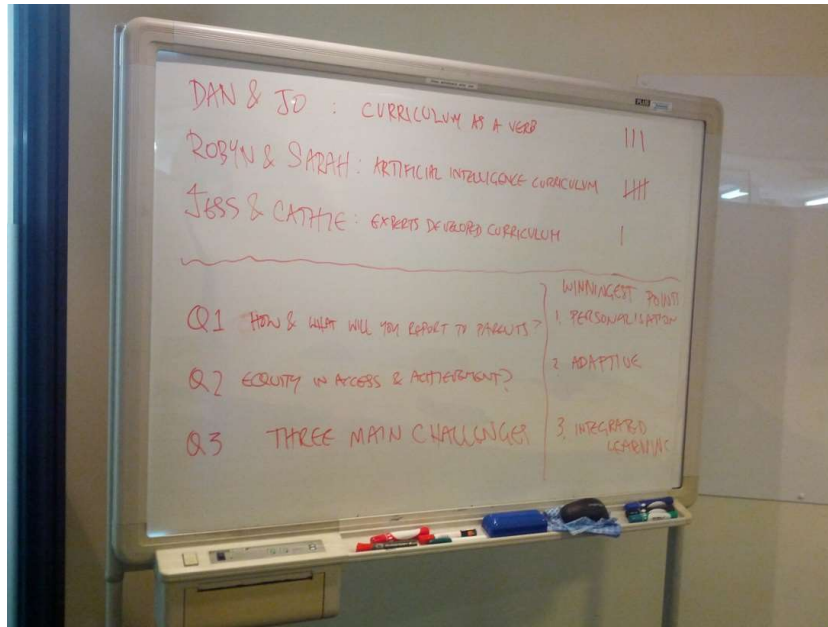 DAN & JO : CURRICULUM AS A VERB |||
ROBYN & SARAH : ARTIFICIAL INTELLIGENCE CURRICULUM ||||
JESS & CATHIE : EXPERTS DEVELOPED CURRICULUM |
Q1 HOW & WHAT WILL YOU REPORT TO PARENTS?
Q2 EQUITY IN ACCESS & ACHIEVEMENT?
Q3 THREE MAIN CHALLENGES
WINNINGEST POINT
1. PERSONALISATION
2. ADAPTIVE
3. INTEGRATED
LEARNING
PLUS